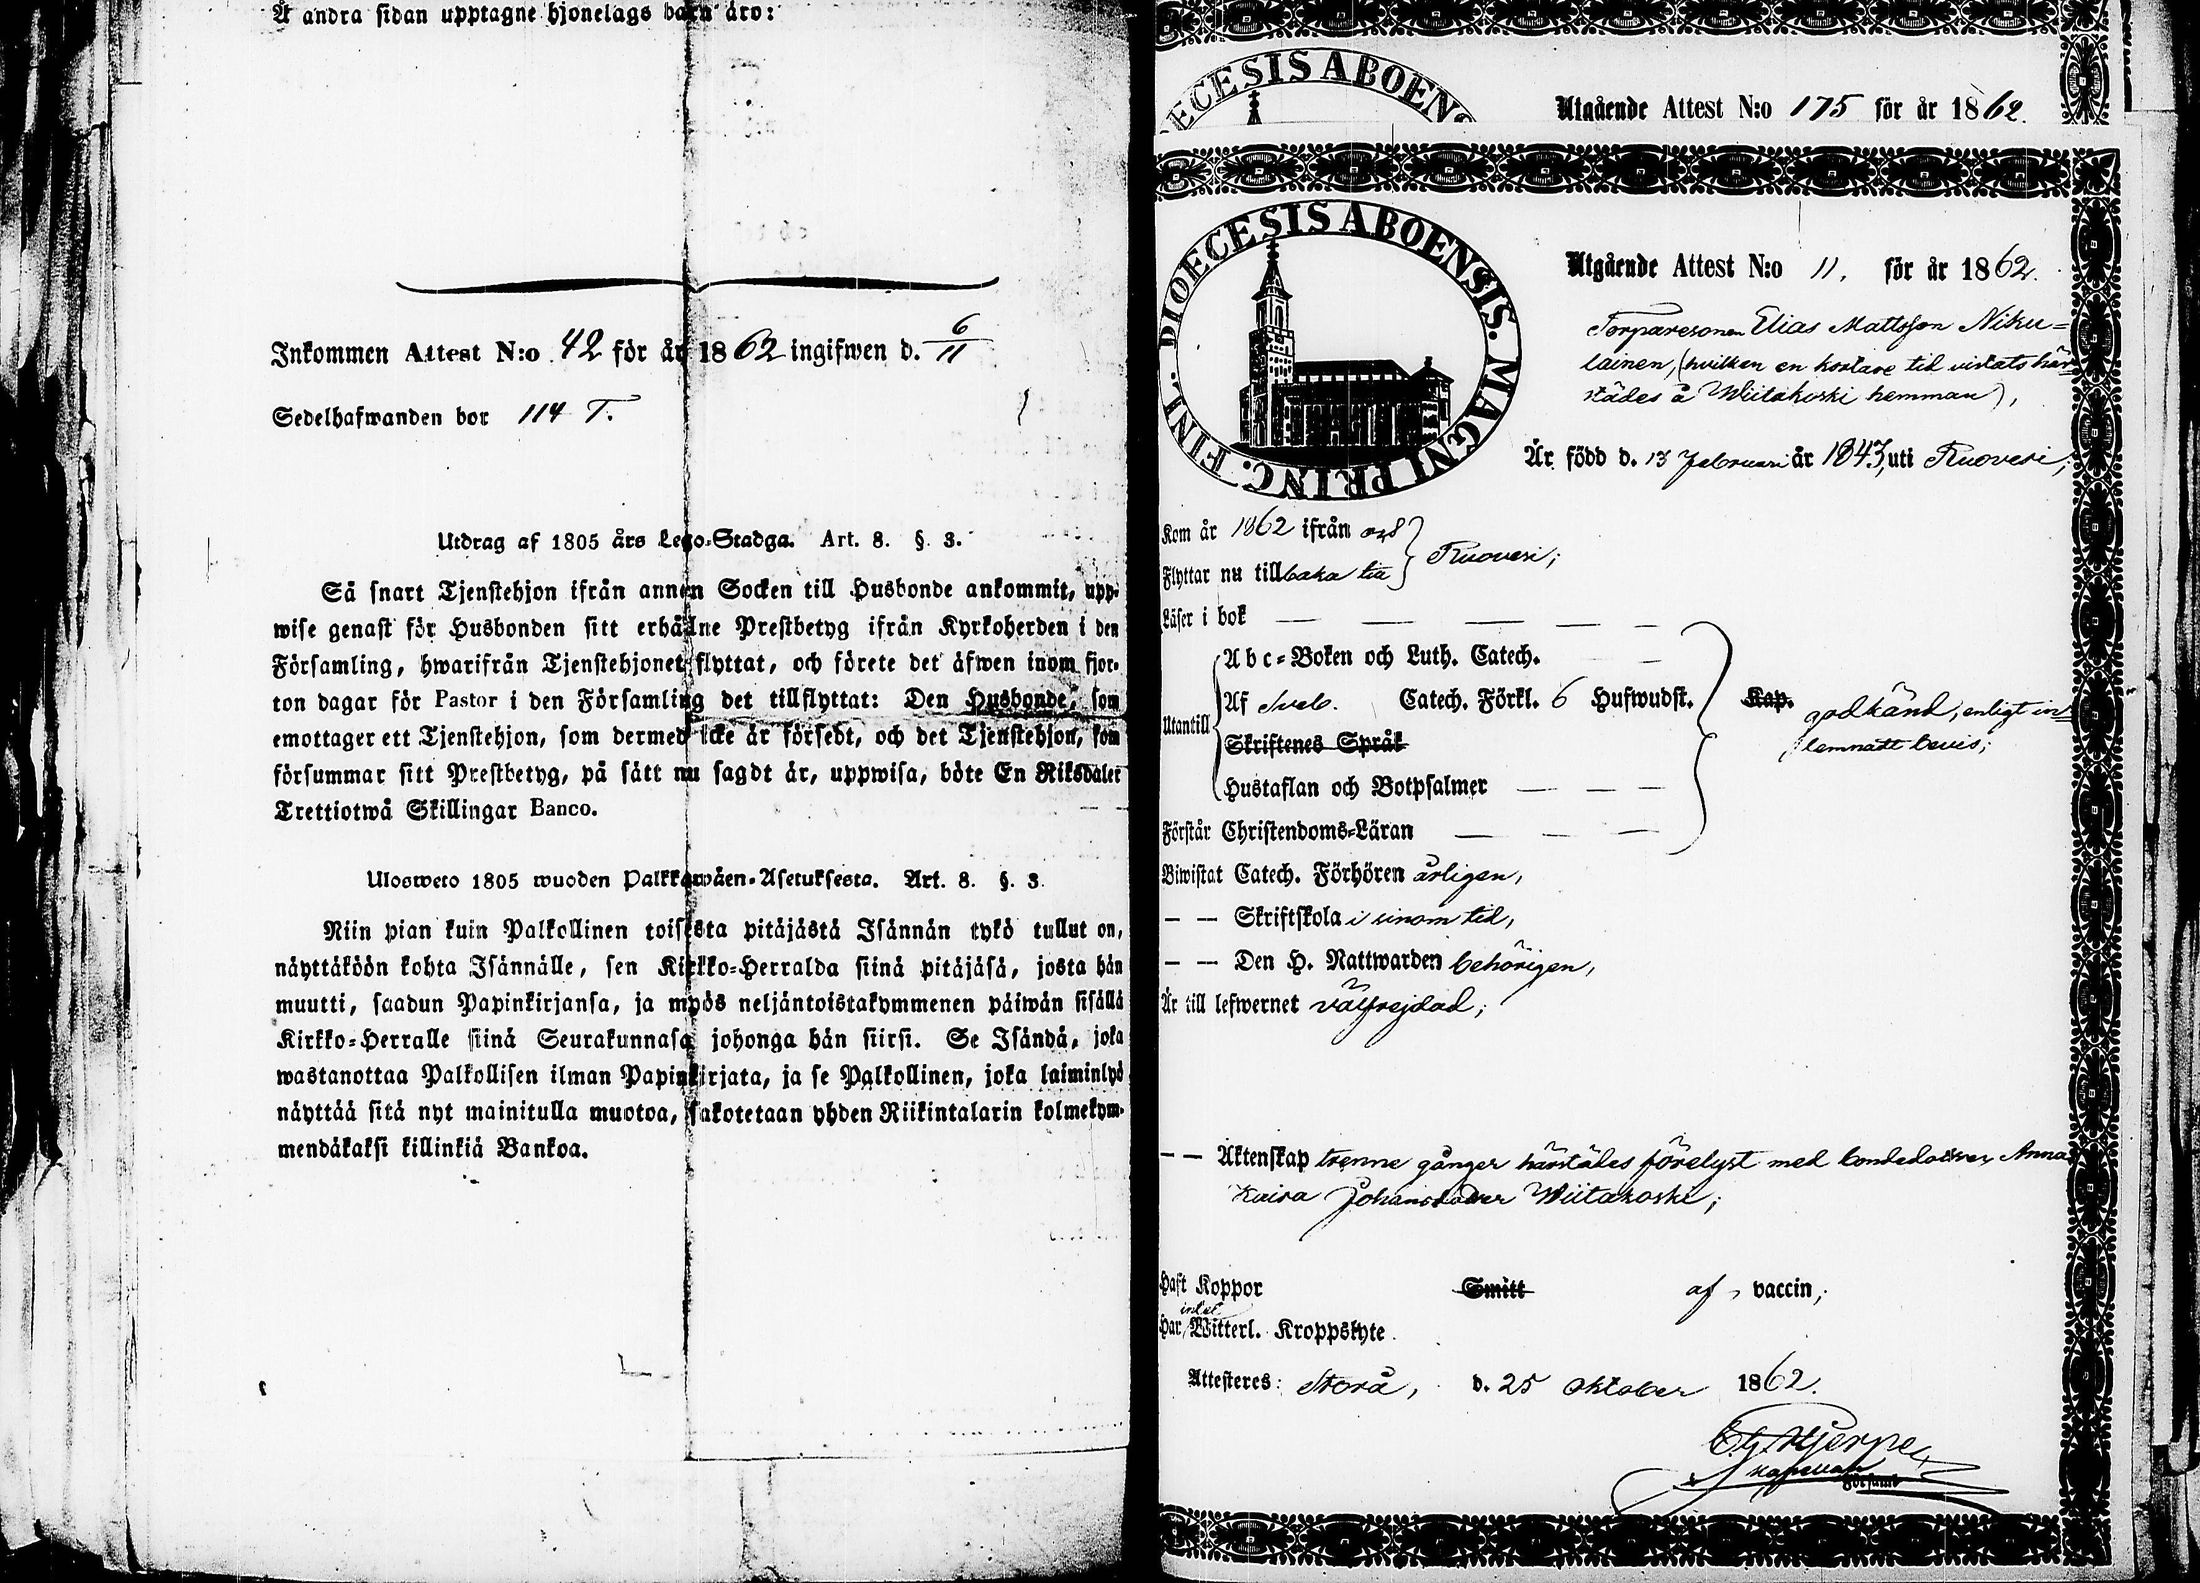 Å andra sidan upptagne hjonelags barn äro:
Inkommen Attest N:o 42 för år 1862 ingifwen d. 6/11
Sedelhafwanden bor 114 T.
Utdrag af 1805 års Lego-Stadga. Art. 8. §. 3.
Så snart Tjenstehjon ifrån annen Socken till Husbonde ankommit, upp-
wise genast för Husbonden sitt erhållne Prestbetyg ifrån Kyrkoherden i den
Församling, hwarifrån Tjenstehjonet flyttat, och förete det äfwen inom fjor-
ton dagar för Pastor i den Församling det tillflyttat: Den Husbonde, som
emottager ett Tjenstehjon, som dermed icke är försedt, och det Tjenstehjon, som
försummar sitt Prestbetyg, på sätt nu sagdt är, uppwisa, böte En Riksdaler
Trettiotwå Skillingar Banco.
Ulosweto 1805 wuoden Palkkawäen-Asetuksesta. Art. 8. §. 3.
Niin pian kuin Palkollinen toisesta pitäjästä Isännän tykö tullut on,
näyttäköön kohta Isännälle, sen Kirkko-Herralda siinä pitäjäsä, josta hän
muutti, saadun Papinkirjansa, ja myös neljäntoistakymmenen päiwän sisällä
Kirkko-Herralle siinä Seurakunnasa johonga hän siirsi. Se Isändä, joka
wastanottaa Palkollisen ilman Papinkirjata, ja se Palkollinen, joka laiminlyö
näyttää sitä nyt mainitulla muotoa, sakotetaan yhden Riikintalarin kolmekym-
mendäkaksi killinkiä Bankoa.
DIOECESIS ABOENS
Utgående Attest N:o 175 för år 1862.
DIOECESIS ABOENSIS. MAGNI PRINC. FINL.
Utgående Attest N:o 11. för år 1862.
Torparesonen Elias Mattsson Niku=
lainen, (hvilken en kortare tid vistats här=
städes å Wiitakoski hemman),
Är född d. 13 Februari år 1843, uti Ruovesi;
Kom år 1862 ifrån och
Flyttar nu tillbaka till
Ruovesi;
Läser i bok — — — — —
Utantill
A b c-Boken och Luth. Catech. — —
Af Sveb. Catech. Förkl. 6 Hufwudst. Kap.
Skriftenes Språk
Hustaflan och Botpsalmer — — — —
godkänd, enligt in=
lemnadt bevis;
Förstår Christendoms-Läran — — —
Biwistat Catech. Förhören årligen,
— — Skriftskola i sinom tid,
— — Den H. Nattwarden behörigen,
Är till lefwernet välfrejdad;
— — Äktenskap trenne gånger härstädes förelyst med bondedottren Anna
Kaisa Johansdotter Wiitakoski;
Haft Koppor Smitt af vaccin;
intet
Har Witterl. Kroppslyte.
Attesteres: Storå, d. 25 Oktober 1862.
Hjerpe
Kapellan
Församl